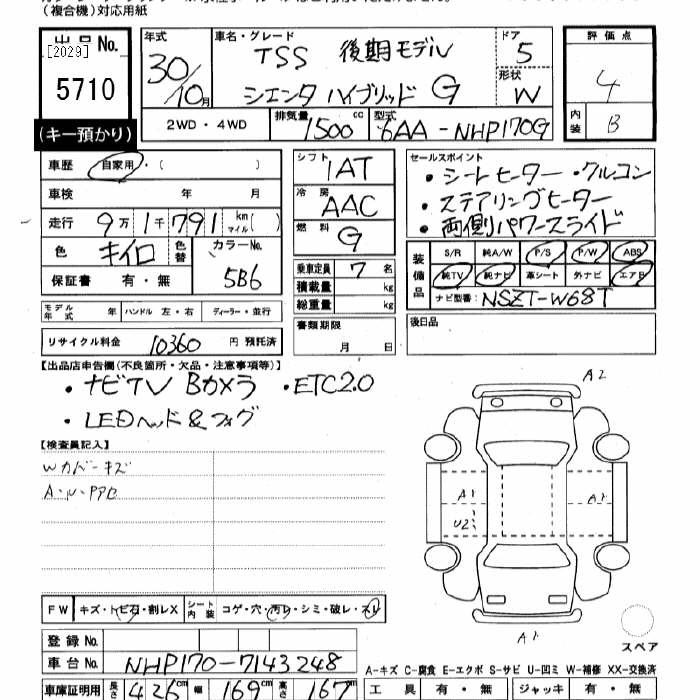 (複合機)対応用紙
出品No.
[2029]
5710
(キー預かり)
年式
30/10月
車名・グレード
TSS 後期モデル
シエンタ ハイブリッド G
ドア
5
形状
W
評価点
4
内装
B
2WD・4WD
排気量
1500 cc
型式
6AA-NHP170G
車歴 自家用・( )
車検 年 月
走行 9万1千791 km マイル( )
色 キイロ 色替 カラーNo. 5B6
保証書 有・無
モデル年式 年 ハンドル 左・右 ディーラー・並行
リサイクル料金 10360 円 預託済
シフト 1AT
冷房 AAC
燃料 G
乗車定員 7 名
積載量 kg
総重量 kg
書類期限
月 日
セールスポイント
・シートヒーター ・クルコン
・ステアリングヒーター
・両側パワースライド
装備品
S/R 純A/W P/S P/W ABS
純TV 純ナビ 革シート 外ナビ エアB
ナビ型番: NSZT-W68T
後日品
【出品店申告欄(不良箇所・欠品・注意事項等)】
・ナビTV Bカメラ ・ETC2.0
・LEDヘッド&フォグ
【検査員記入】
Wカバーキズ
A2
A1
U2
A1
A1
スペア
FW キズ・トビ石・割レX シート内装 コゲ・穴・汚レ・シミ・破レ・スレ
登録No.
車台No. NHP170-7143248
A-キズ C-腐食 E-エクボ S-サビ U-凹ミ W-補修 XX-交換済
車庫証明用 長さ 426cm 幅 169cm 高さ 167cm
工具 有・無 ジャッキ 有・無